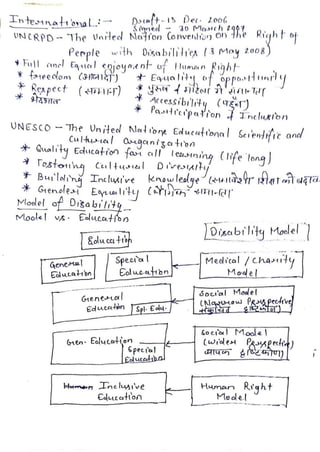 International :- Draft - 13 Dec. 2006
Signed - 30 March 2007
UNCRPD - The United Nation Convention on the Right of
People with Disabilities (3 May 2008)
* Full and Equal enjoyment of Human Right
* freedom (आजादी) * Equality of opportunity
* Respect (सम्मान) * पुरुष व महिला में समानता
* भेदभाव * Accessibility (पहुँच)
* Participation & Inclusion
UNESCO - The United Nations Educational Scientific and
Cultural Organization
* Quality Education for all learning (life long)
* Fostering Cultural Diversity
* Building Inclusive Knowledge (समावेशी शिक्षा को बढ़ावा
* Gender Equality (लैंगिक समानता)
Model of Disability
Model vs. Education
Education
Disability Model
General Education
Special Education
Medical / Charity Model
General Education
Spl. Edu.
Social Model
(Narrow Perspective)
संकुचित दृष्टिकोण
Gen. Education
Special Education
Social Model
(Wider Perspective)
(व्यापक दृष्टिकोण)
Human Inclusive Education
Human Right Model